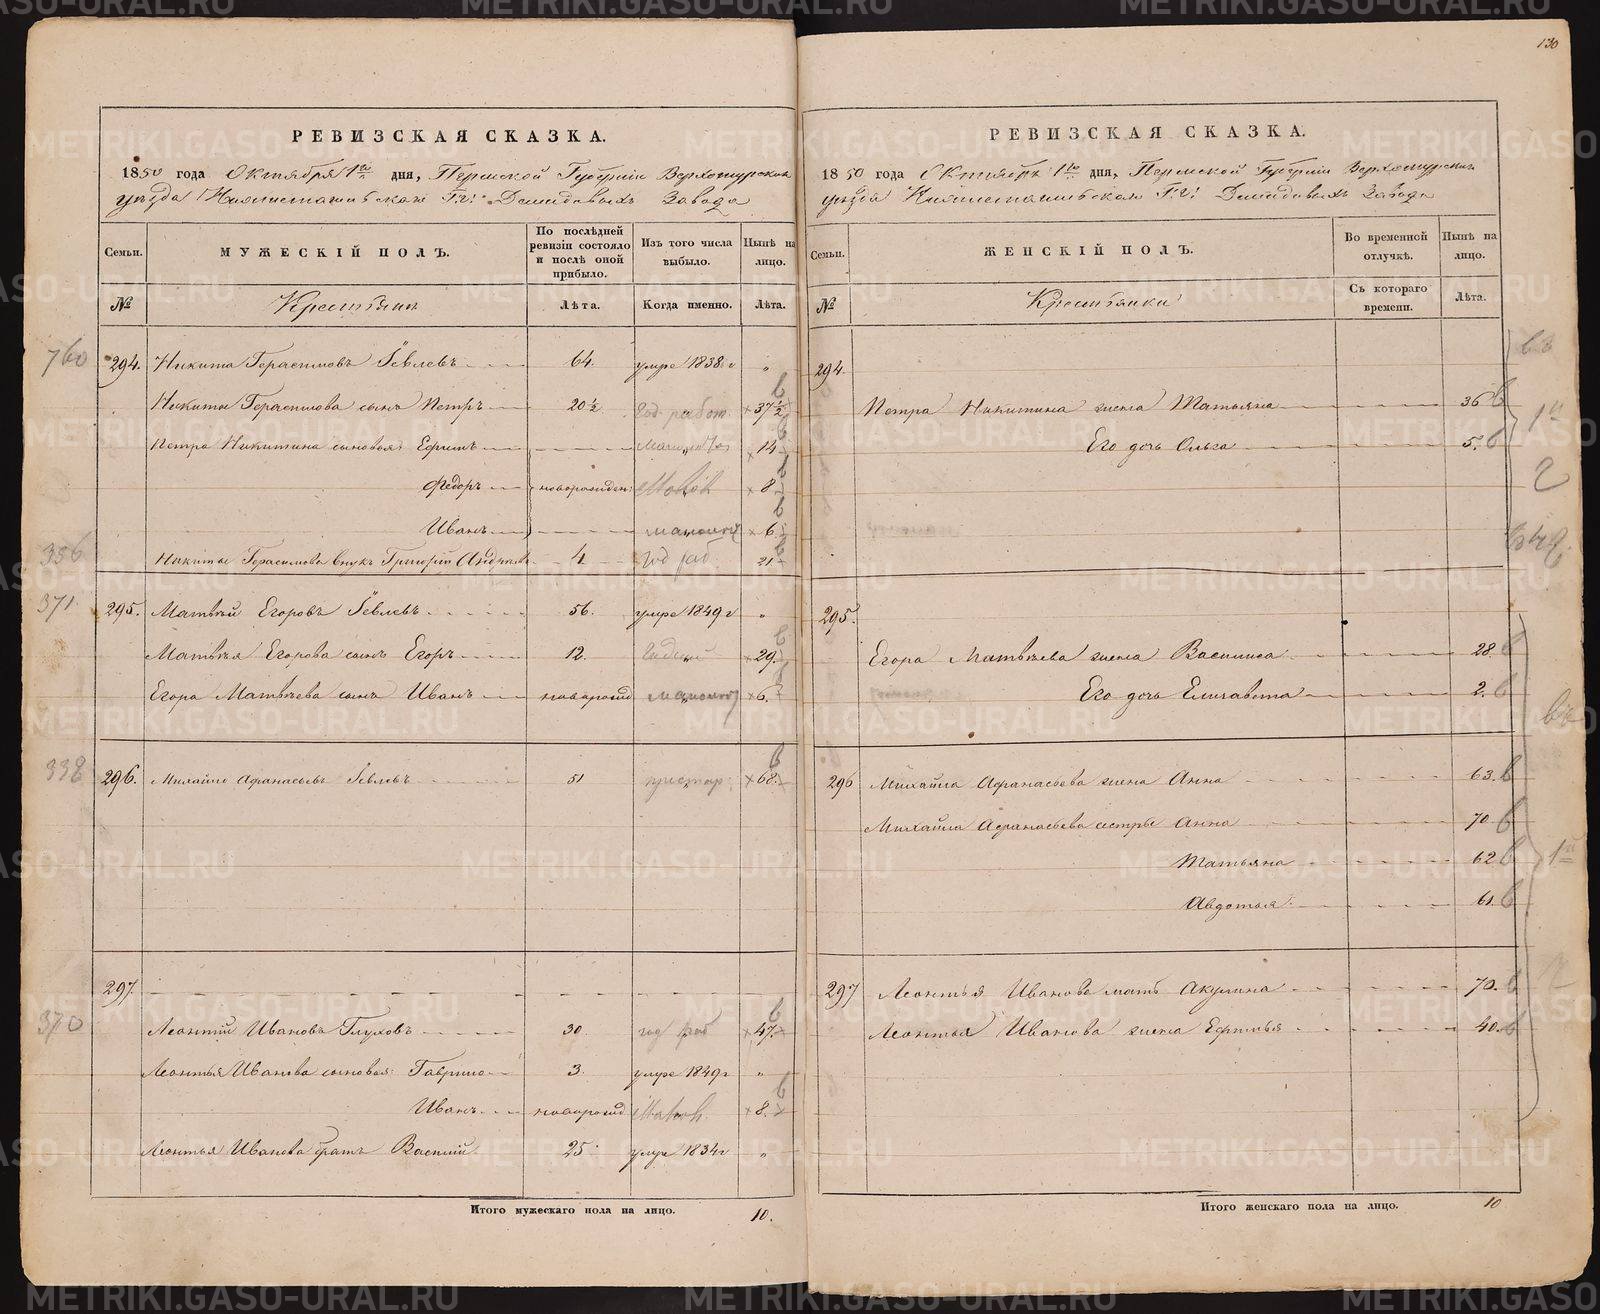 130
РЕВИЗСКАЯ СКАЗКА.
1850 года Октября 1го дня, Пермской Губернии Верхотурскаго
уѣзда Нижнетагильскаго Гг. Демидовыхъ Завода
Семьи. МУЖЕСКІЙ ПОЛЪ. По послѣдней ревизіи состояло и послѣ оной прибыло. Изъ того числа выбыло. Нынѣ на лицо.
№ Крестьяне Лѣта. Когда именно. Лѣта.
760 294. Никита Герасимовъ Іевлевъ 64. умре 1838 г "
Никиты Герасимова сынъ Петръ 20½ год работ. 37½
Петра Никитина сыновья: Ефимъ 14
Федоръ новорожден: 8
Иванъ малолѣт 6
356 Никиты Герасимова внукъ Григорій Андреевъ 4 год раб 21
371 295. Матвѣй Егоровъ Іевлевъ 56. умре 1849 г "
Матвѣя Егорова сынъ Егоръ 12. годный 29.
Егора Матвѣева сынъ Иванъ новорожд малолѣт 6
338 296. Михайло Афанасьевъ Іевлевъ 51 престар: 68.
297.
370 Леонтій Ивановъ Глуховъ 30. год раб 47
Леонтья Иванова сыновья: Гаврило 3. умре 1849 г "
Иванъ новорожд 8.
Леонтья Иванова братъ Василій 25 умре 1834 г "
Итого мужескаго пола на лицо. 10.
РЕВИЗСКАЯ СКАЗКА.
1850 года Октября 1го дня, Пермской Губернии Верхотурскаго
уѣзда Нижнетагильскаго Гг. Демидовыхъ Завода
Семьи. ЖЕНСКІЙ ПОЛЪ. Во временной отлучкѣ. Нынѣ на лицо.
№ Крестьянки Съ котораго времени. Лѣта.
294.
Петра Никитина жена Татьяна 36
Его дочь Ольга 5.
295.
Егора Матвѣева жена Василиса 28.
Его дочь Елизавета 2.
296 Михайла Афанасьева жена Анна 63.
Михайла Афанасьева сестры Анна 70
Татьяна 62
Авдотья 61.
297 Леонтья Иванова мать Акулина 70.
Леонтья Иванова жена Ефимья 40.
Итого женскаго пола на лицо. 10
METRIKI.GASO-URAL.RU